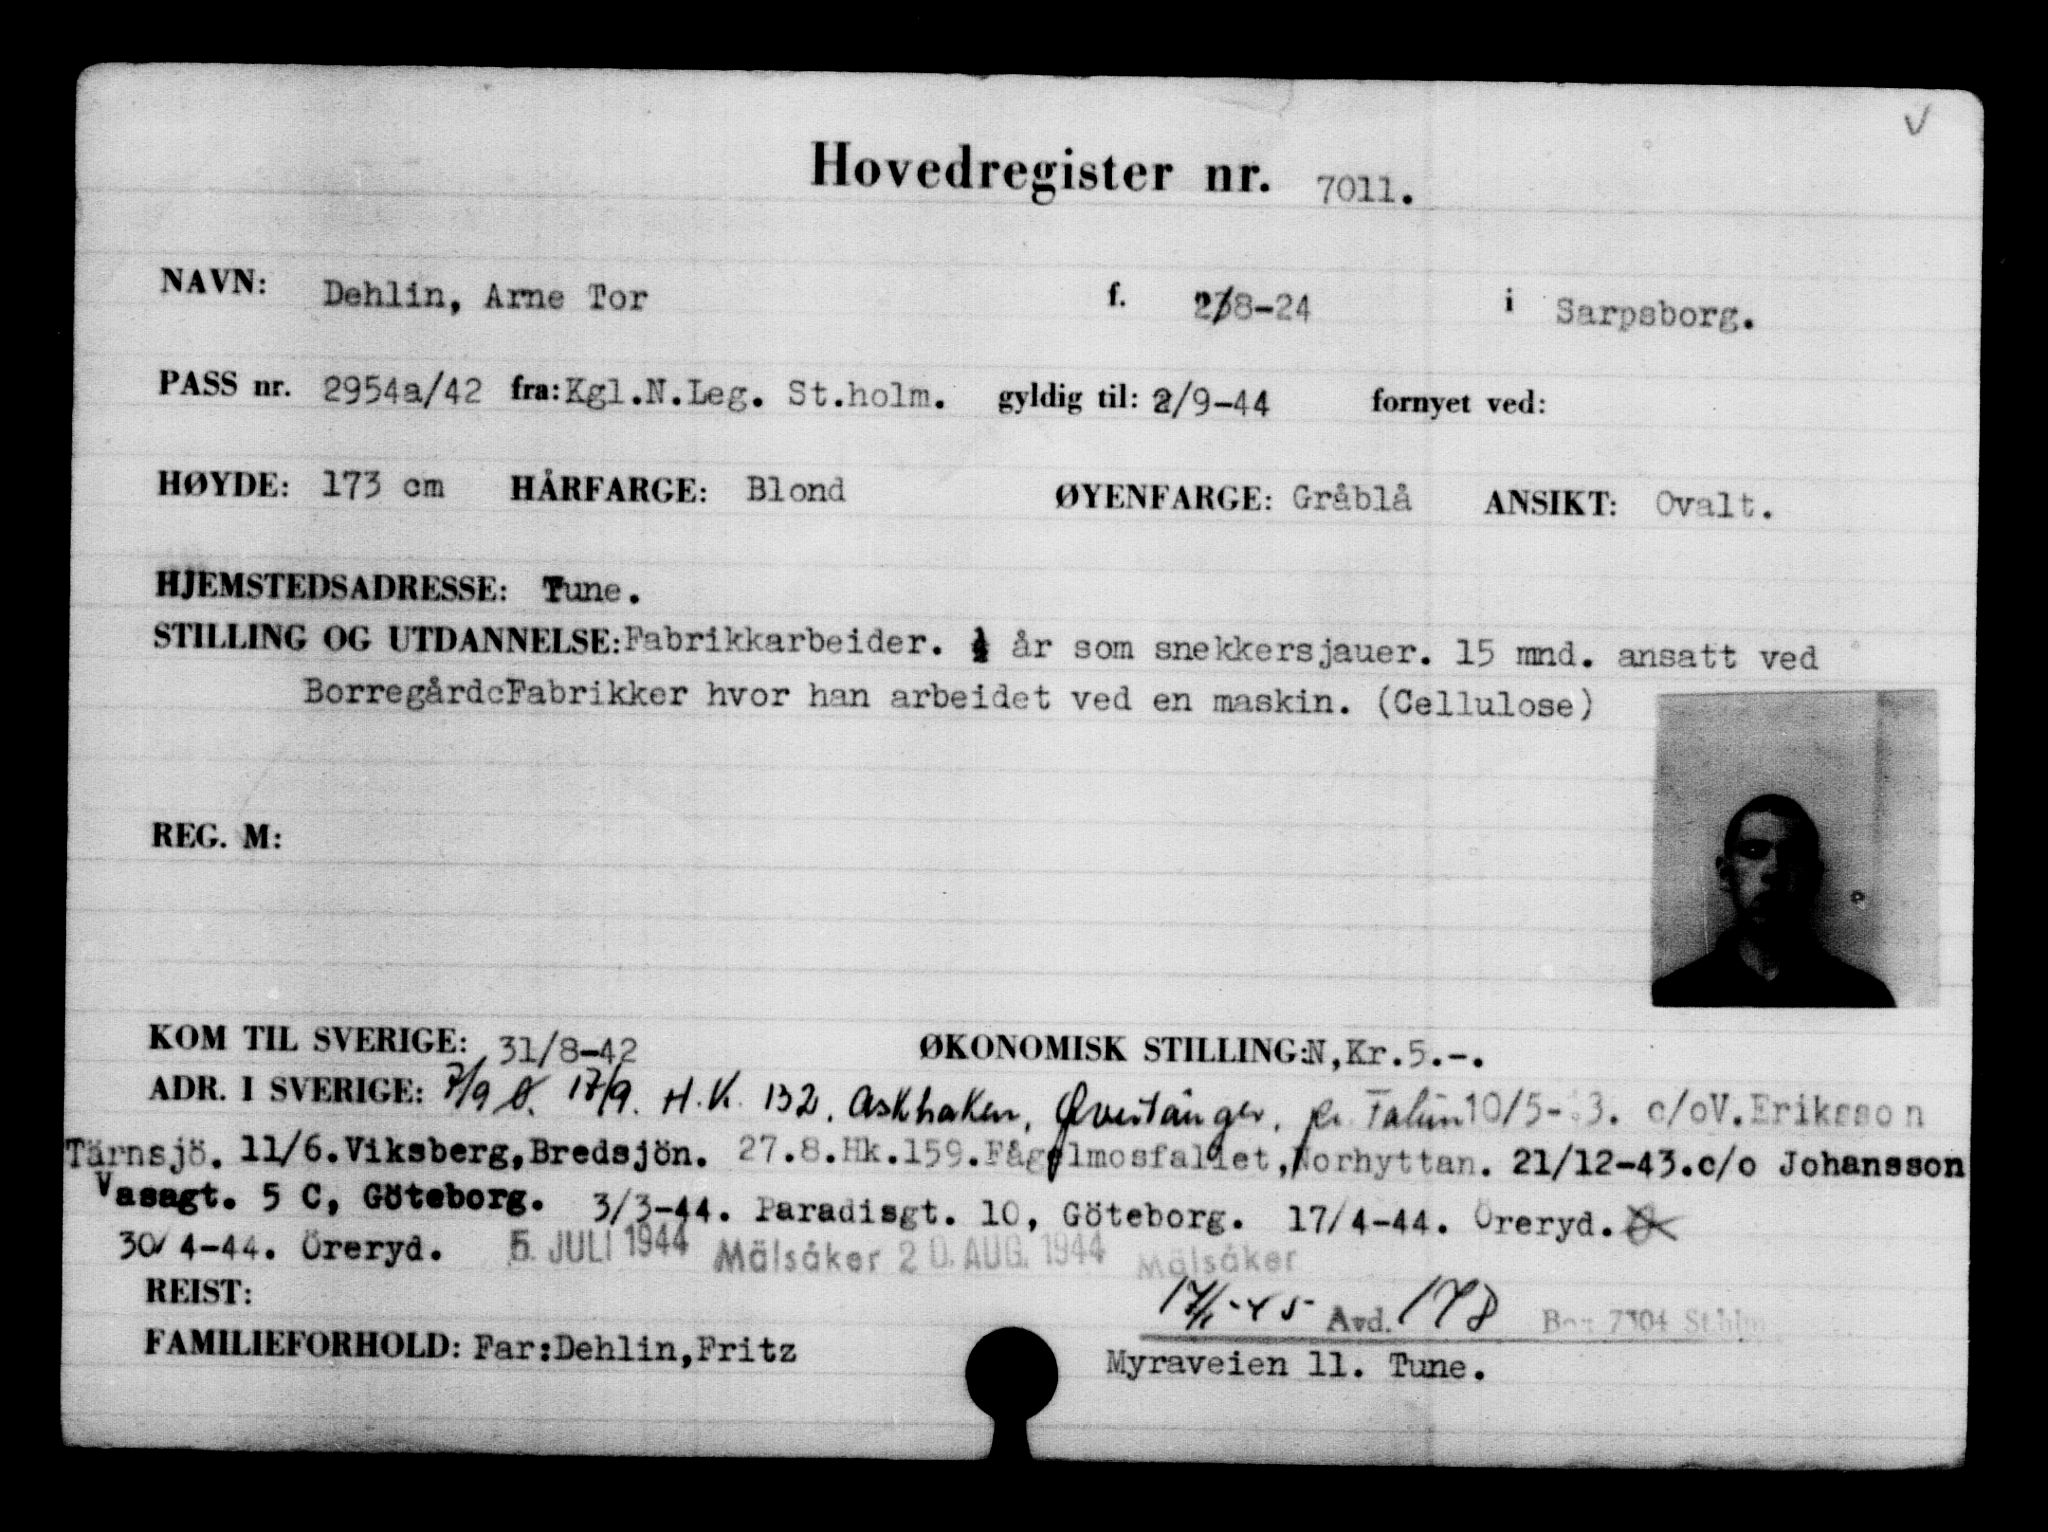 Hovedregister nr. 7011.
NAVN: Dehlin, Arne Tor f. 8-24 i Sarpsborg.
PASS nr. 2954a/42 fra: Kgl.N.Leg. St.holm. gyldig til: 2/9-44 fornyet ved:
HØYDE: 173 cm HÅRFARGE: Blond ØYENFARGE: Gråblå ANSIKT: Ovalt.
HJEMSTEDSADRESSE: Tune.
STILLING OG UTDANNELSE: Fabrikkarbeider. år som snekkersjauer. 15 mnd. ansatt ved
Fabrikker hvor han arbeidet ved en maskin. (Cellulose)
REG. M:
KOM TIL SVERIGE: 31/8-42 ØKONOMISK STILLING: N,Kr.5.-.
ADR. I SVERIGE: 7/9 Ø. 17/9. H.K. 132. Askhaken, Øvertänger, pr. Falun 10/5- 3. c/oV.Eriksson
Tärnsjö. 11/6.Viksberg,Bredsjön. 27.8.Hk.159.Fågelmosfallet,Norhyttan. 21/12-43.c/o Johansson
Vasagt. 5 C, Göteborg. 3/3-44. Paradisgt. 10, Göteborg. 17/4-44. Öreryd.
30/4-44. Öreryd. 5. JULI 1944 Mälsåker 20. AUG. 1944 Mälsåker
REIST: 17/1-45 Avd. 178 Box 7304 Sthlm
FAMILIEFORHOLD: Far:Dehlin,Fritz Myraveien 11. Tune.